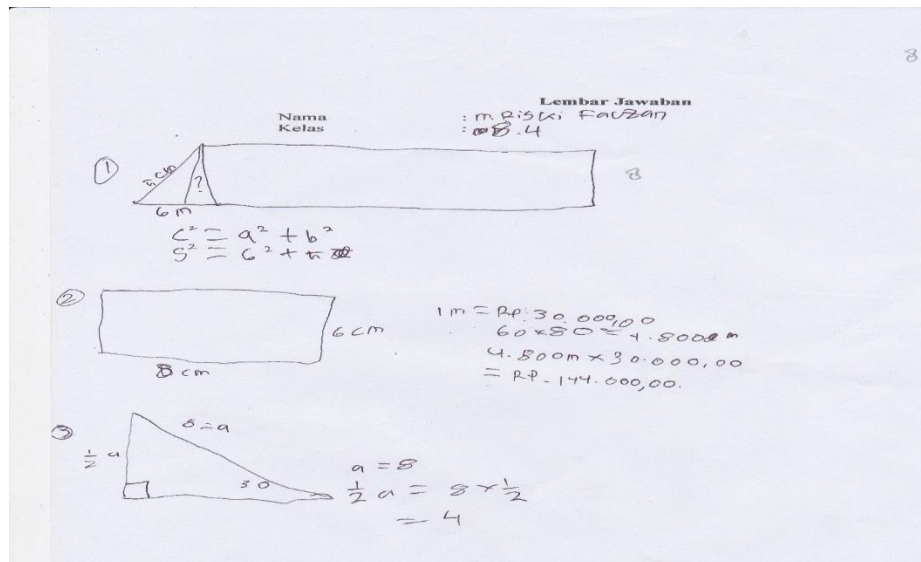 8
Lembar Jawaban
Nama : M. Riski Fauzan
Kelas : 8.4
8
① 5 cm
?
6 m
c² = a² + b²
5² = 6² +
②
6 cm
8 cm
1 m = Rp. 30.000,00
60 x 80 = 4.800 m
4.800m x 30.000,00
= Rp. 144.000,00.
③
8 = a
½ a
30
a = 8
½ a = 8 x ½
= 4